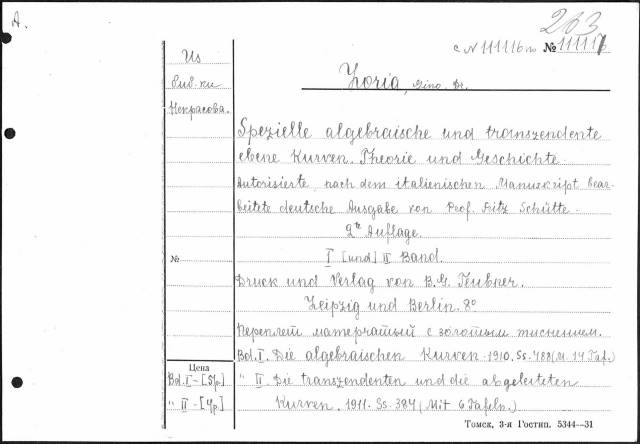 A.
263
с N 111116 по № 111117
Из
биб-ки
Некрасова.
Loria, Gino, Dr.
Spezielle algebraische und transzendente
ebene Kurven. Theorie und Geschichte.
Autorisierte, nach dem italienischen Manuskript bear-
beitete deutsche Ausgabe von Prof. Fritz Schütte.
2te Auflage.
№
I [und] II Band.
Druck und Verlag von B.G. Teubner.
Leipzig und Berlin. 8°
Переплет матерчатый с золотым тиснением.
Bd. I. Die algebraischen Kurven. 1910. Ss. 488 (M. 14 Taf.)
Цена
Bd. I - [5р.]
" II Die transzendenten und die abgeleiteten
" II - [4р.]
Kurven. 1911. Ss. 384 (Mit 6 Tafeln.)
Томск, 3-я Гостип. 5344—31